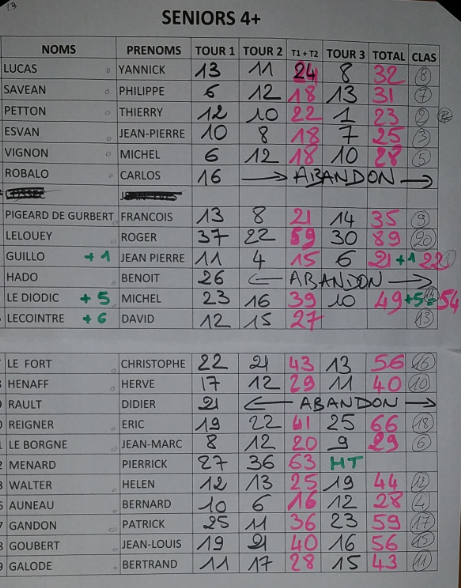 SENIORS 4+
NOMS PRENOMS TOUR 1 TOUR 2 T1 + T2 TOUR 3 TOTAL CLAS
LUCAS YANNICK 13 11 24 8 32 8
SAVEAN PHILIPPE 6 12 18 13 31 7
PETTON THIERRY 12 10 22 1 23 2
ESVAN JEAN-PIERRE 10 8 18 7 25 3
VIGNON MICHEL 6 12 18 10 28 5
ROBALO CARLOS 16 → ABANDON →
PIGEARD DE GURBERT FRANCOIS 13 8 21 14 35 9
LELOUEY ROGER 37 22 59 30 89 20
GUILLO +1 JEAN PIERRE 11 4 15 6 21 +1 22
HADO BENOIT 26 ← ABANDON →
LE DIODIC +5 MICHEL 23 16 39 10 49 +5= 54
LECOINTRE +6 DAVID 12 15 27 13
LE FORT CHRISTOPHE 22 21 43 13 56 16
HENAFF HERVE 17 12 29 11 40 10
RAULT DIDIER 21 ← ABANDON →
REIGNER ERIC 19 22 41 25 66 18
LE BORGNE JEAN-MARC 8 12 20 9 29 6
MENARD PIERRICK 27 36 63 MT
WALTER HELEN 12 13 25 19 44 12
AUNEAU BERNARD 10 6 16 12 28 4
GANDON PATRICK 25 11 36 23 59 17
GOUBERT JEAN-LOUIS 19 21 40 16 56 15
GALODE BERTRAND 11 17 28 15 43 11